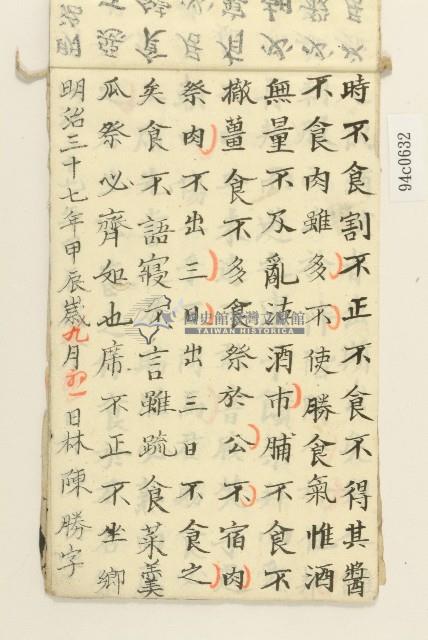 時不食割不正不食不得其醬
不食肉雖多不使勝食氣惟酒
無量不及亂沽酒市脯不食不
撤薑食不多食祭於公不宿肉
祭肉不出三日出三日不食之
矣食不語寢不言雖疏食菜羹
瓜祭必齊如也席不正不坐鄉
明治三十七年甲辰歲九月初一日林陳勝字
國史館臺灣文獻館
TAIWAN HISTORICA
94c0632